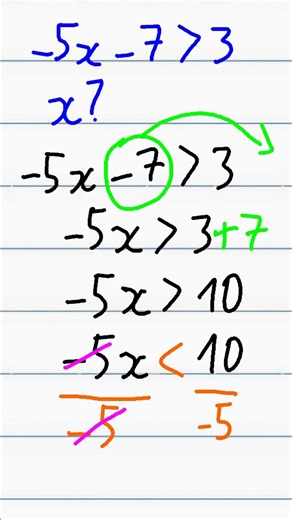 -5x -7 > 3
x?
-5x -7 > 3
-5x > 3+7
-5x > 10
-5x < 10
-5 -5